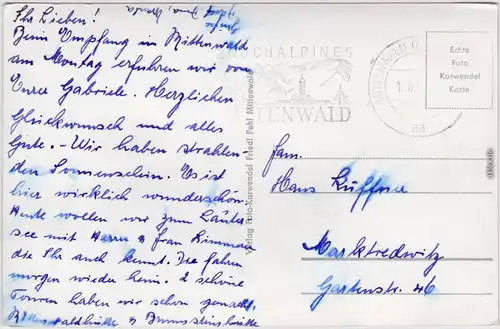 Ihr Lieben!
Beim Empfang in Mittenwald
am Montag erfuhren wir von
Eurer Gabriele. Herzlichen
Glückwunsch und alles
Gute. - Wir haben strahlen-
den Sonnenschein. Es ist
hier wirklich wunderschön.
Heute wollen wir zum Lauter-
see mit Herrn u Frau
die Ihr auch kennt. Die fahren
morgen wieder heim. 2 schöne
Touren haben wir schon gemacht,
u Brunnsteinhütte
HOCHALPINES
MITTENWALD
aa
Verlag Foto-Karwendel Friedl Pehl Mittenwald
Echte
Foto
Karwendel
Karte
Fam.
Hans Küffner
Marktredwitz
Gartenstr. 46